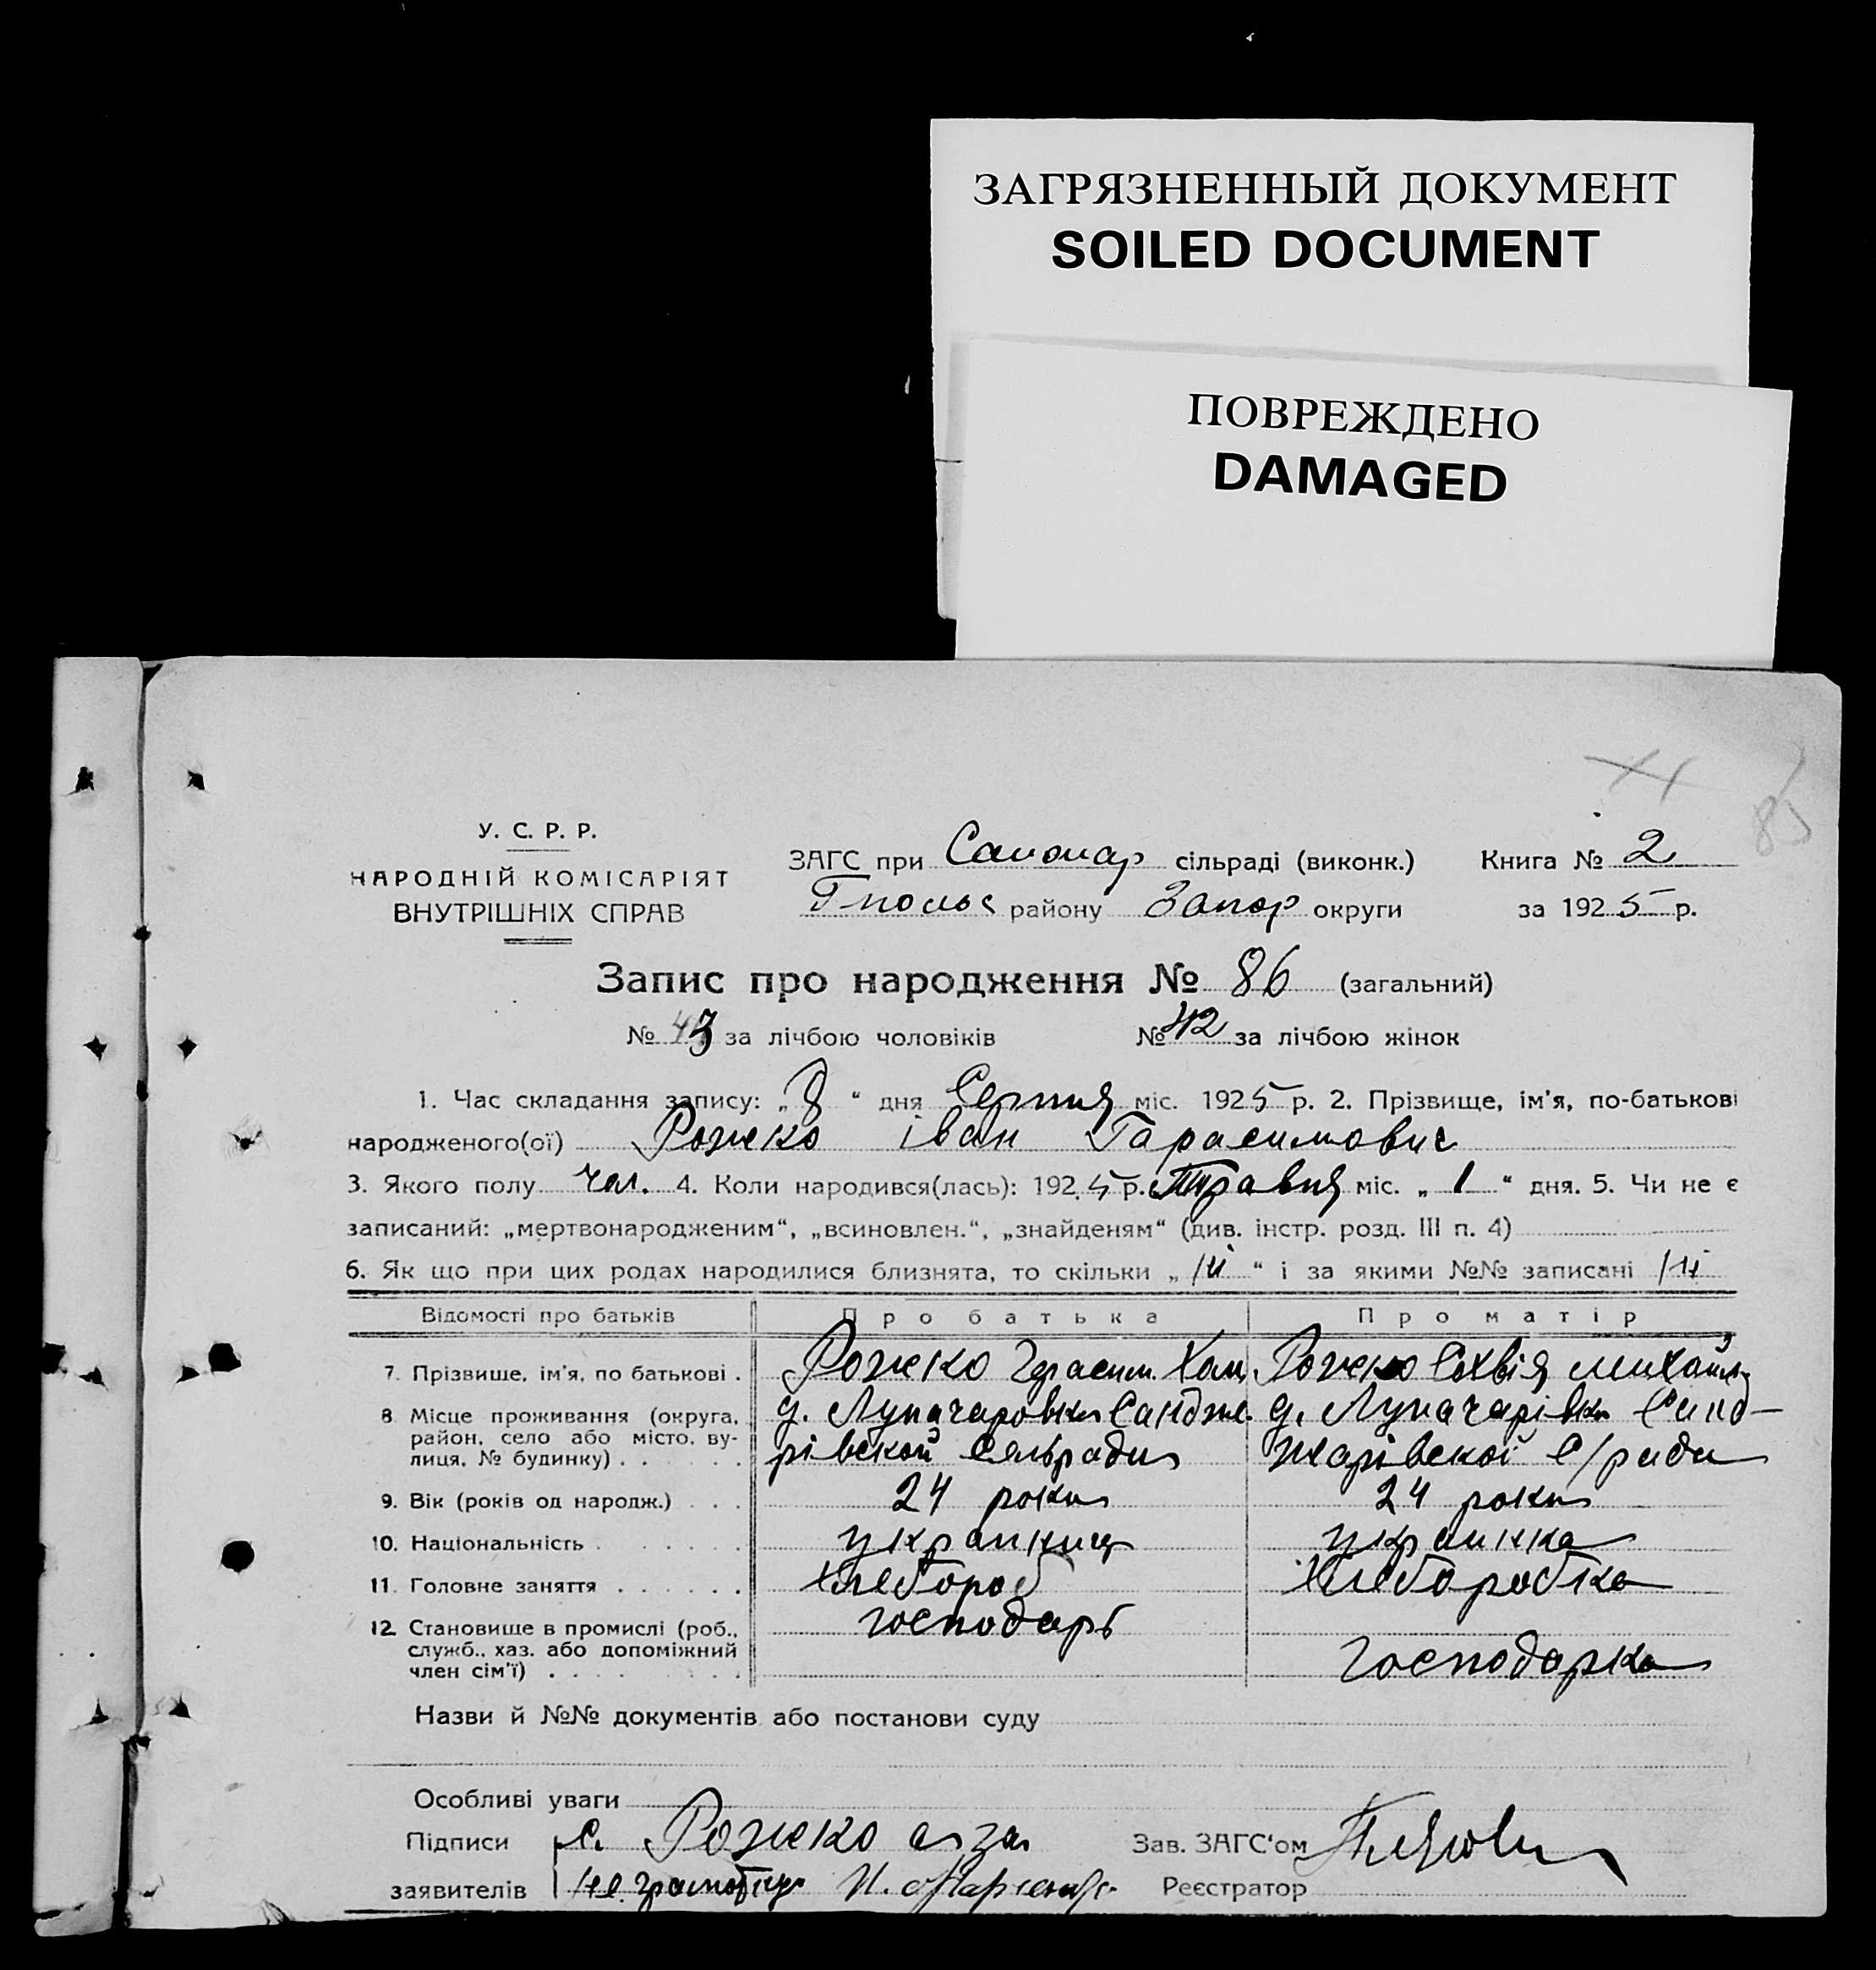 ЗАГРЯЗНЕННЫЙ ДОКУМЕНТ
SOILED DOCUMENT
ПОВРЕЖДЕНО
DAMAGED
85
У. С. Р. Р.
НАРОДНІЙ КОМІСАРІЯТ
ВНУТРІШНІХ СПРАВ
ЗАГС при сільраді (виконк.) Книга № 2
району Запор округи за 1925 р.
Запис про народження № 86 (загальний)
№ 43 за лічбою чоловіків № 42 за лічбою жінок
1. Час складання запису: „8“ дня Серпня міс. 1925 р. 2. Прізвище, ім'я, по-батькові
народженого(ої) Рожко Іван Гарасимович
3. Якого полу чол. 4. Коли народився(лась): 1925 р. Травня міс. „1“ дня. 5. Чи не є
записаний: „мертвонародженим“, „всиновлен.“, „знайденям“ (див. інстр. розд. III п. 4)
6. Як що при цих родах народилися близнята, то скільки „ “ і за якими №№ записані
Відомості про батьків Про батька Про матір
7. Прізвище, ім'я, по батькові . Рожко Герасим. Хом. Рожко Софія Михайл.
8. Місце проживання (округа, район, село або місто, вулиця, № будинку) . . . . . .
д. Луначаровка Санджа- д. Луначарівка Санд-
рівской Сельради жарівскої С/ради
9. Вік (років од народж.) . . . 24 роки 24 роки
10. Національність . . . . . . . украинец украинка
11. Головне заняття . . . . . . хлебороб хлеборобка
12. Становище в промислі (роб., служб., хаз. або допоміжний член сім'ї) . . . . . . .
господарь господарка
Назви й №№ документів або постанови суду
Особливі уваги
Підписи С. Рожко а за Зав. ЗАГС'ом
заявителів не грамотну Реєстратор